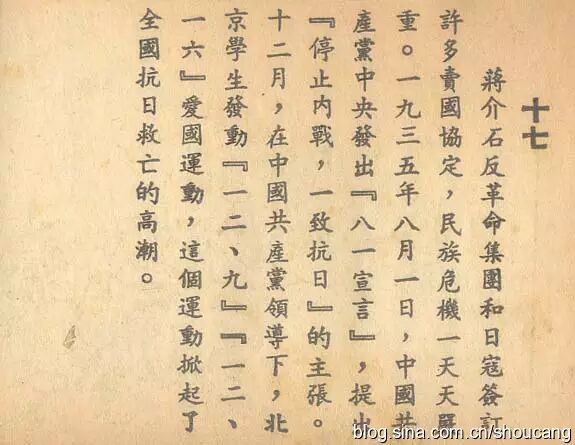 十七
蔣介石反革命集團和日寇簽訂
許多賣國協定，民族危機一天天嚴
重。一九三五年八月一日，中國共
產黨中央發出『八一宣言』，提出
『停止內戰，一致抗日』的主張。
十二月，在中國共產黨領導下，北
京學生發動『一二、九』『一二、
一六』愛國運動，這個運動掀起了
全國抗日救亡的高潮。
blog.sina.com.cn/shoucang